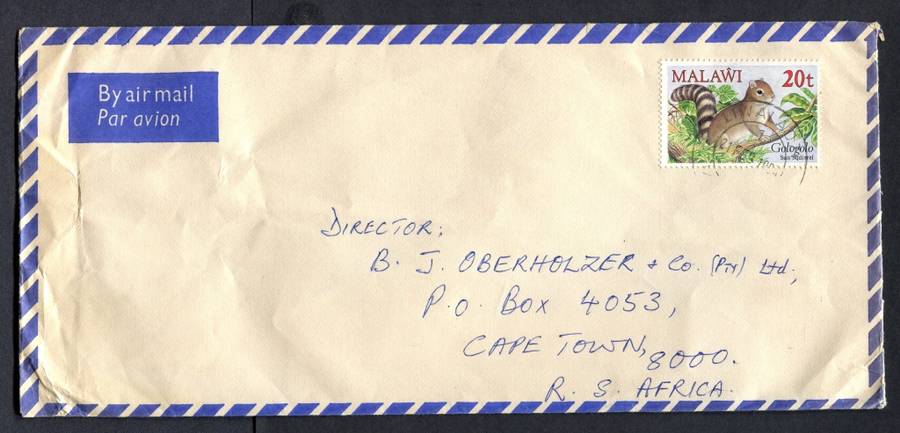 By air mail
Par avion
MALAŴI 20t
Gologolo
Sun Squirrel
DIRECTOR;
B. J. OBERHOLZER & Co. (Pty) Ltd;
P.O. Box 4053,
CAPE TOWN, 8000.
R. S. AFRICA.